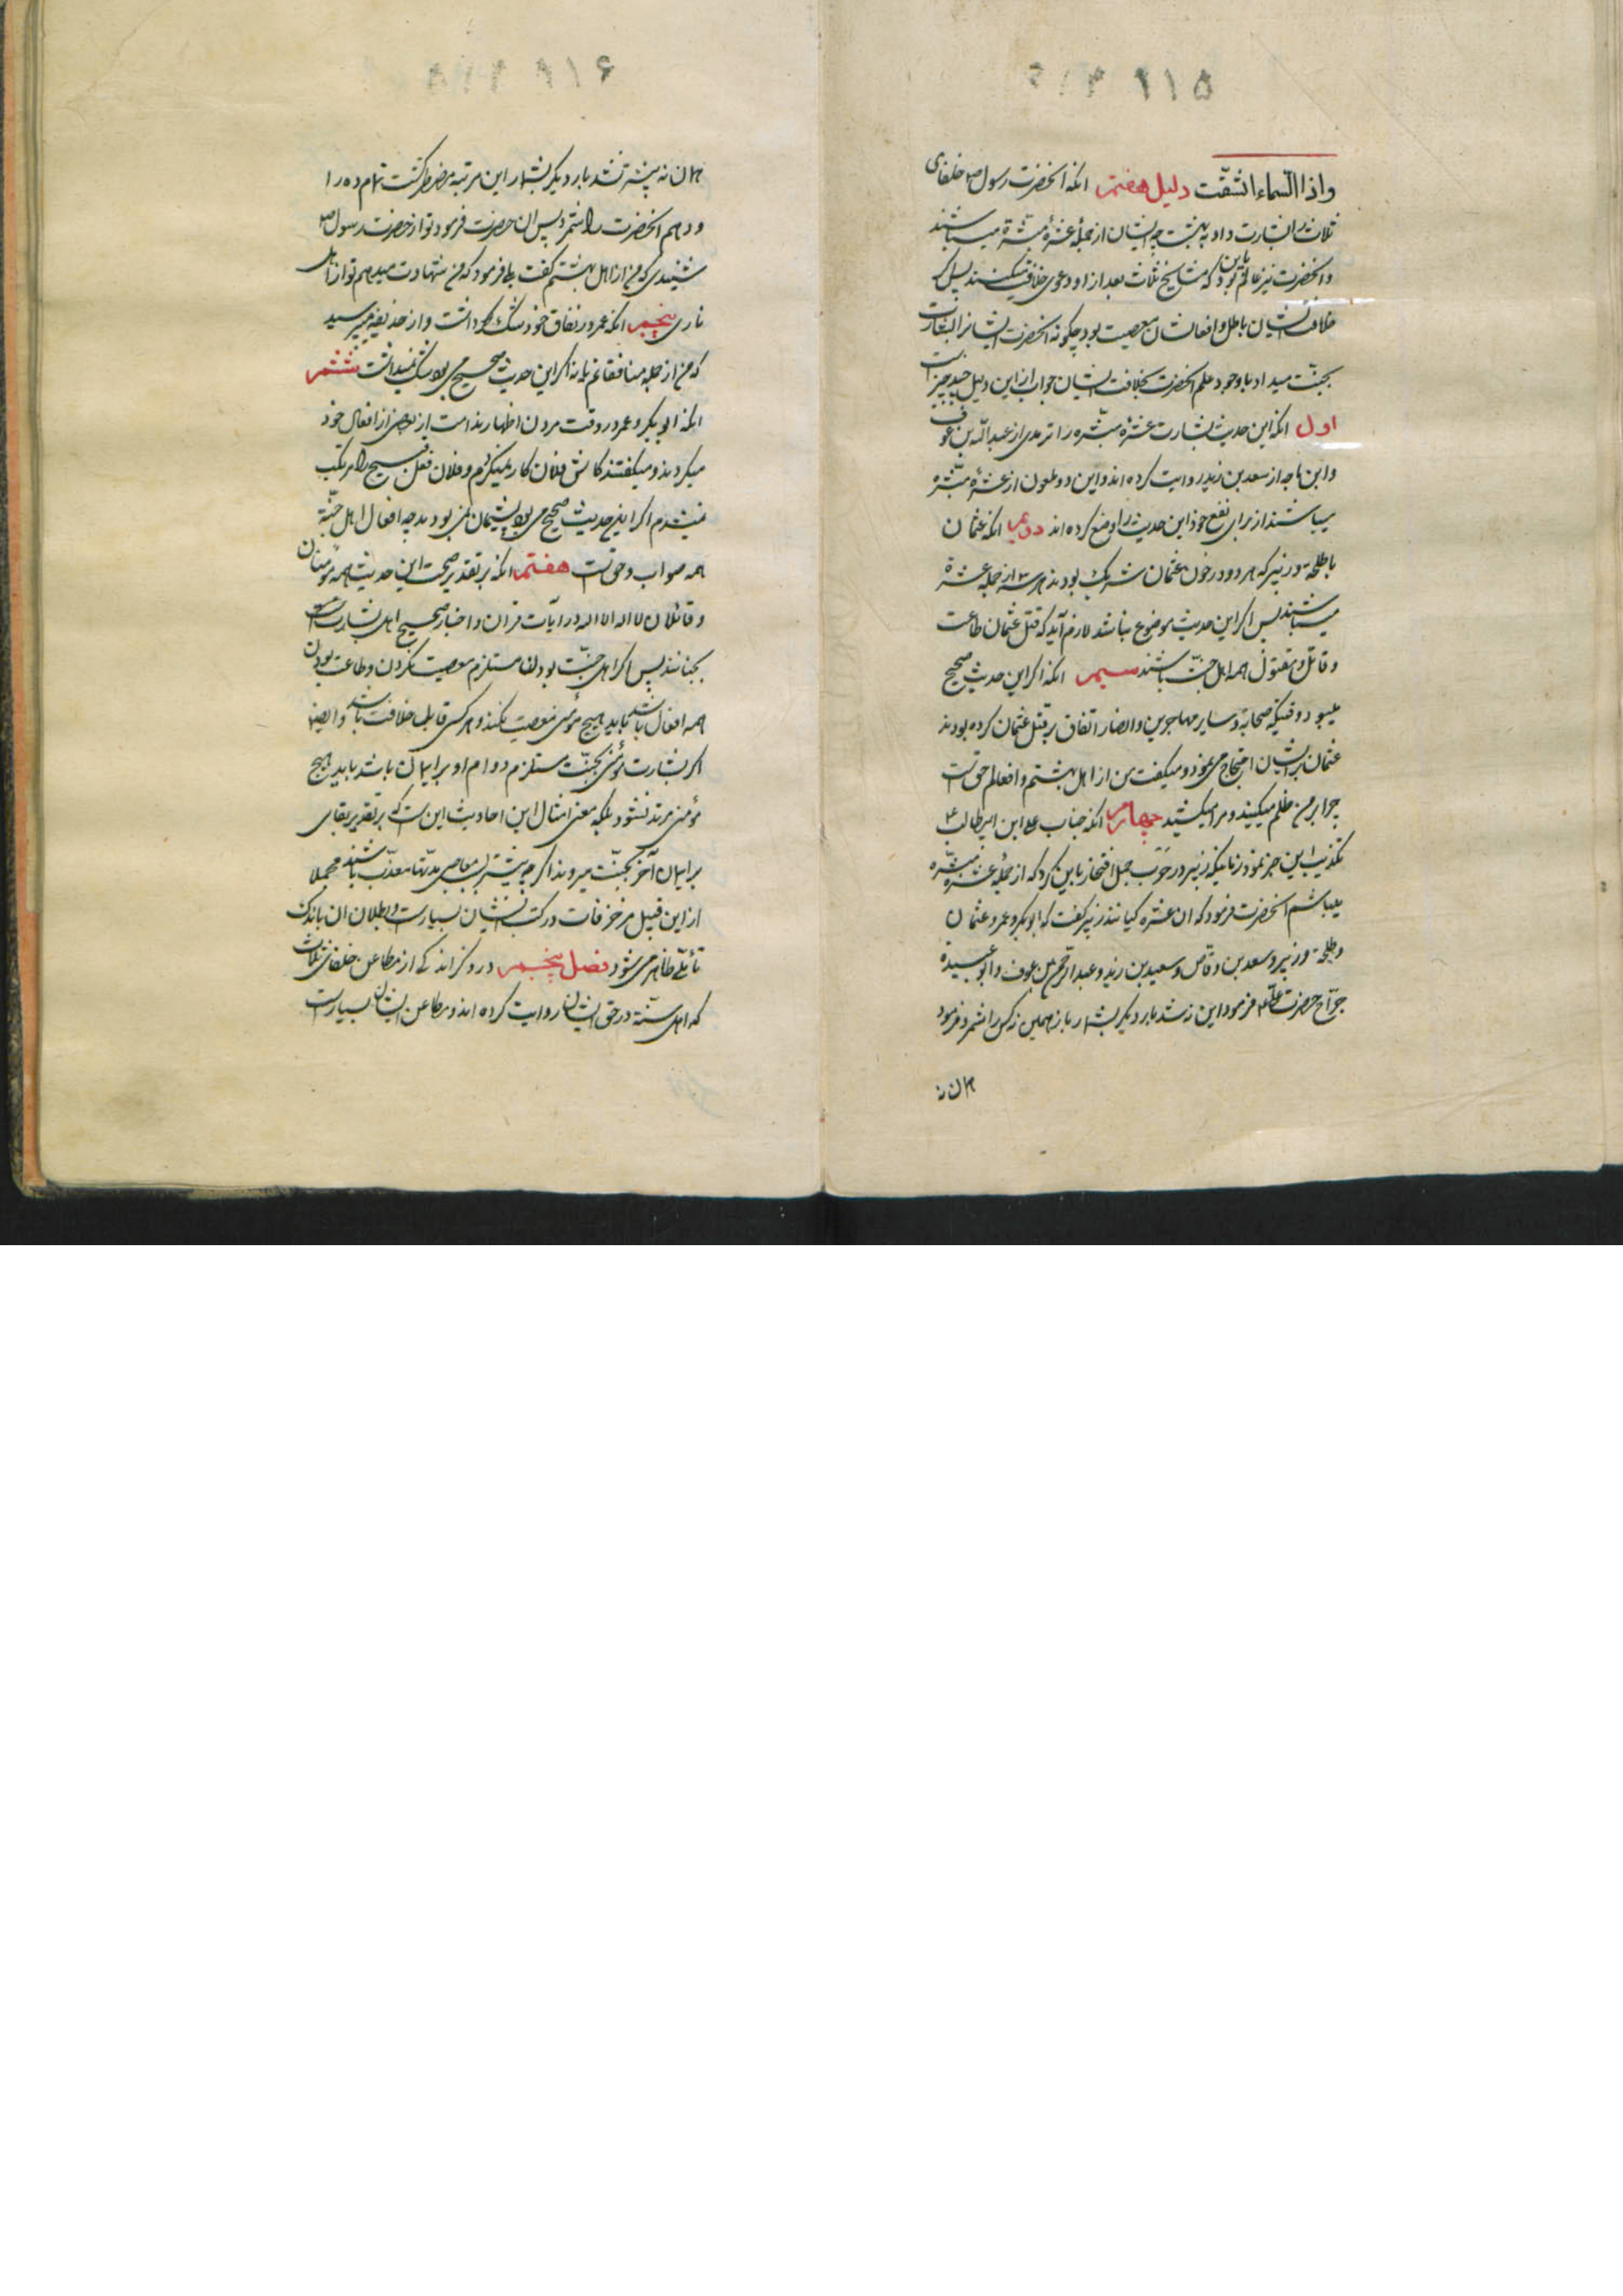 ۹۱۵
واذا السّماء انشقّت دلیل هفتم انکه انحضرت رسول ص خلفای
ثلاث را بشارت داد به بهشت چه ایشان از جملهٔ عشرهٔ مبشّرة میباشند
وانحضرت نیز عالم بود باین که مشایخ ثلاث بعد از او دعوی خلافت میکنند پس اگر
خلافت ایشان باطل وافعالشان معصیت بود چکونه انحضرت ایشانرا بشارت
بجنّت میداد با وجود علم انحضرت بخلافت ایشان جواب از این دلیل چند چیز است
اول انکه این حدیث بشارت عشرهٔ مبشّره را ترمدی از عبدالله بن عوف
وابن ماجه از سعد بن زید روایت کرده اند واین دو ملعون از عشرهٔ مبشّره
میباشند از برای نفع خود این حدیث را وضع کرده اند دویم انکه عثمان
با طلحة وزبیر که هر دو در خون عثمان شریک بودند هر سه از جمله عشرة
میباشند پس اکر این حدیث موضوع نباشد لازم آید که قتل عثمان طاعت
وقاتل ومقتول همه اهل جنّت باشند سیم انکه اکر این حدیث صحیح
میبود وقتیکه صحابة وسایر مهاجرین وانصار اتفاق بر قتل عثمان کرده بودند
عثمان بر ایشان احتجاج می نمود ومیکفت من از اهل بهشتم وافعالم حق است
چرا بر من ظلم میکنید ومرا میکشید چهارم انکه جناب علی ابن ابیطالب ع
تکذیب این خبر نمود زمانیکه زبیر در حرب جمل افتخار باین کرد که از جملهٔ عشرهٔ مبشّره
میباشم انحضرت فرمود که ان عشره کیانند زبیر کفت که ابوبکر وعمر وعثمان
وطلحة وزبیر وسعد بن وقاص وسعید بن زید وعبدالرحمن بن عوف وابو عبیدة
جرّاح حضرت علی ع فرمود این نه شد بار دیکر بشمار باز همین نه کس را شمرد فرمود
همان نه
۹۱۶
همان نه بیشتر نشد بار دیکر بشمار این مرتبه مضطر کشت تمام ده را
ودهم انحضرت را شمرد پس ان حضرت فرمود تو از حضرت رسول ص
شنیدی که من از اهل بهشتم کفت بلی فرمود که من شهادت میدهم تو از اهل
ناری پنجم انکه عمر در نفاق خود شک داشت واز حذیفه میپرسید
که من از جمله منافقانم یا نه اکر این حدیث صحیح می بود شک نمیداشت ششم
انکه ابوبکر وعمر در وقت مردن اظهار ندامت از بعضی از افعال خود
میکردند ومیکفتند کاش فلان کار نمیکردم وفلان فعل قبیح را مرتکب
نمیشدم اکر این حدیث صحیح می بود پشیمان نمی بودند چه افعال اهل جنّة
همه صواب وحق است هفتم انکه بر تقدیر صحت این حدیث همه مؤمنان
وقائلان لا اله الا الله در آیات قران واخبار صحیح اهل بشارت
بجنانند پس اکر اهل جنّت بودن مستلزم معصیت نکردن وطاعت بودن
همه افعال باشد باید هیچ مؤمنی معصیت نکند وهر کس قابل خلافت باشد وایضا
اکر بشارت مؤمن بجنّت مستلزم دوام او بر ایمان باشد باید هیچ
مؤمنی مرتد نشود بلکه معنی امثال این احادیث این است که بر تقدیر بقای
بر ایمان آخر بجنّت میروند اکر چه بیشتر بمعاصی مدتها معذّب باشند مجملا
از این قبیل مزخرفات در کتب ایشان بسیارست وبطلان ان باندک
تأمّلی ظاهر می شود فصل پنجم در ذکر اندکی از مطاعن خلفای ثلاث
که اهل سنّة در حق ایشان روایت کرده اند ومطاعن ایشان بسیارست